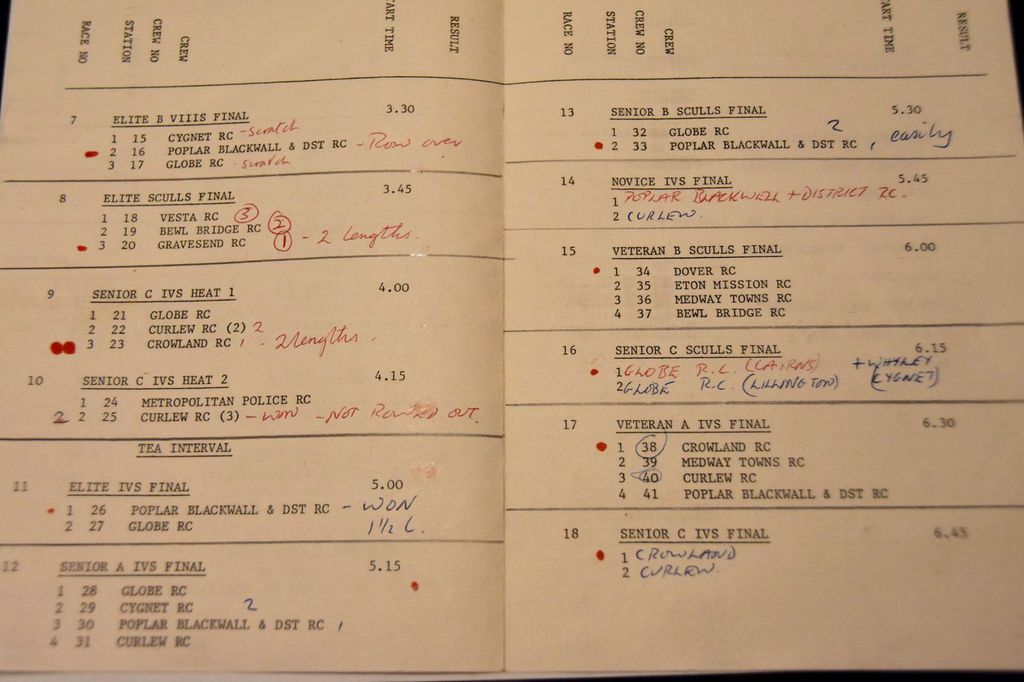 RACE NO STATION CREW NO CREW START TIME RESULT
7 ELITE B VIIIS FINAL 3.30
1 15 CYGNET RC - scratch
2 16 POPLAR BLACKWALL & DST RC - Row over
3 17 GLOBE RC - scratch
8 ELITE SCULLS FINAL 3.45
1 18 VESTA RC 3
2 19 BEWL BRIDGE RC 2
3 20 GRAVESEND RC 1 - 2 lengths.
9 SENIOR C IVS HEAT 1 4.00
1 21 GLOBE RC
2 22 CURLEW RC (2) 2
3 23 CROWLAND RC 1 - 2 lengths.
10 SENIOR C IVS HEAT 2 4.15
1 24 METROPOLITAN POLICE RC
2 2 25 CURLEW RC (3) - WON - NOT ROWED OUT.
TEA INTERVAL
11 ELITE IVS FINAL 5.00
1 26 POPLAR BLACKWALL & DST RC - WON
2 27 GLOBE RC 1½ L.
12 SENIOR A IVS FINAL 5.15
1 28 GLOBE RC
2 29 CYGNET RC 2
3 30 POPLAR BLACKWALL & DST RC 1
4 31 CURLEW RC
RACE NO STATION CREW NO CREW START TIME RESULT
13 SENIOR B SCULLS FINAL 5.30
1 32 GLOBE RC 2
2 33 POPLAR BLACKWALL & DST RC 1 easily
14 NOVICE IVS FINAL 5.45
1 POPLAR BLACKWELL + DISTRICT RC.
2 CURLEW.
15 VETERAN B SCULLS FINAL 6.00
1 34 DOVER RC
2 35 ETON MISSION RC
3 36 MEDWAY TOWNS RC
4 37 BEWL BRIDGE RC
16 SENIOR C SCULLS FINAL 6.15
1 GLOBE R.C. (CAIRNS) + WHYLEY
2 GLOBE R.C. (LILLINGTON) (CYGNET)
17 VETERAN A IVS FINAL 6.30
1 38 CROWLAND RC
2 39 MEDWAY TOWNS RC
3 40 CURLEW RC
4 41 POPLAR BLACKWALL & DST RC
18 SENIOR C IVS FINAL 6.45
1 CROWLAND
2 CURLEW.